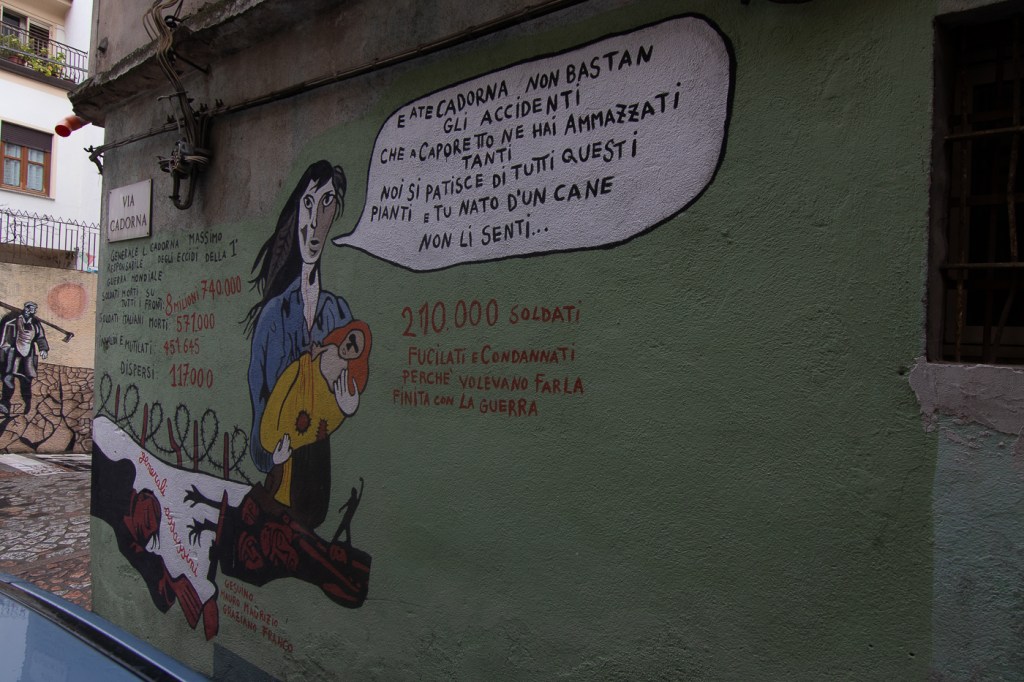 E A TE CADORNA NON BASTAN
GLI ACCIDENTI
CHE A CAPORETTO NE HAI AMMAZZATI
TANTI
NOI SI PATISCE DI TUTTI QUESTI
PIANTI E TU NATO D'UN CANE
NON LI SENTI...
VIA
CADORNA
GENERALE L. CADORNA MASSIMO
RESPONSABILE DEGLI ECCIDI DELLA 1ª
GUERRA MONDIALE
SOLDATI MORTI SU
TUTTI I FRONTI 8 MILIONI 740.000
SOLDATI ITALIANI MORTI 571.000
E MUTILATI 451.645
DISPERSI 117000
210.000 SOLDATI
FUCILATI E CONDANNATI
PERCHE' VOLEVANO FARLA
FINITA CON LA GUERRA
generali assassini
GESUINO
MAURIZIO
GRAZIANO FRANCO